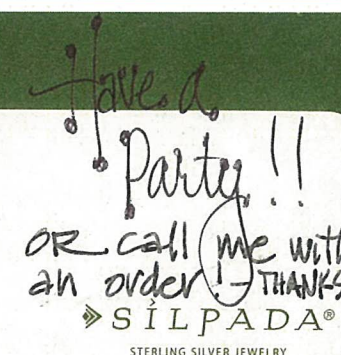 Have a
Party!!
OR call me with
an order! - THANKS
SÍLPADA®
STERLING SILVER JEWELRY